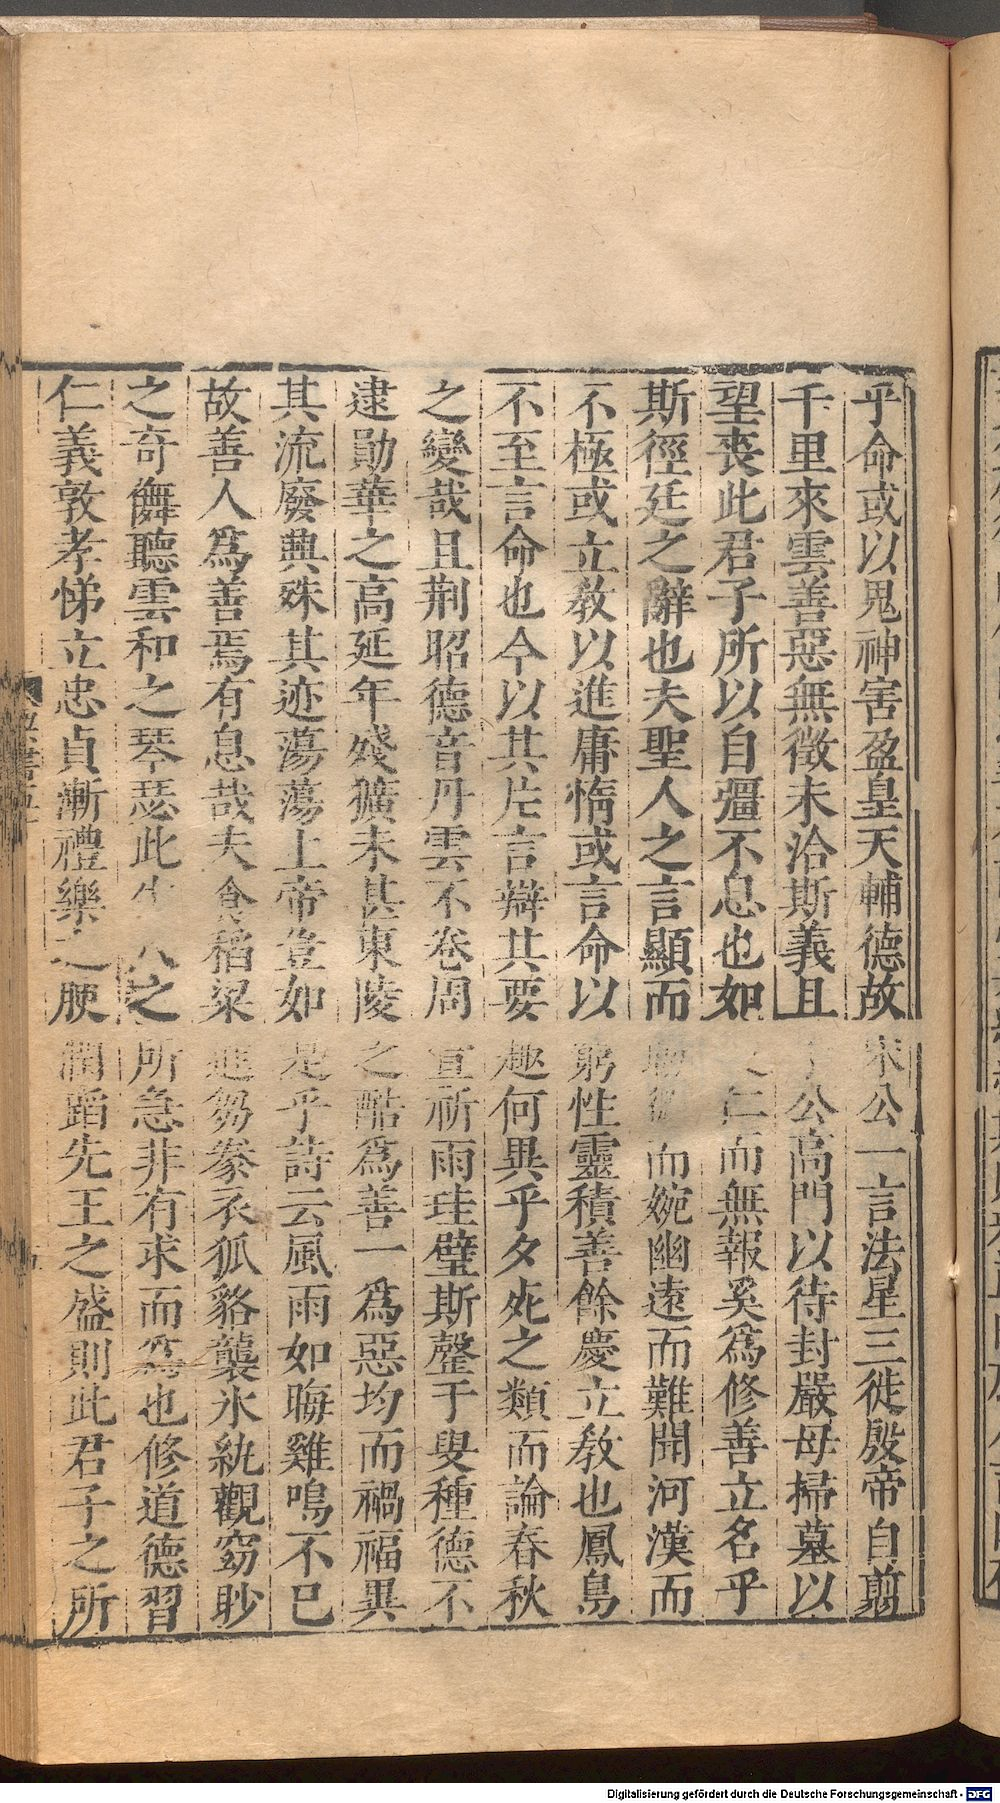 乎命或以鬼神害盈皇天輔德故宋公一言法星三徙殷帝自翦
千里來雲善惡無徵未洽斯義且于公高門以待封嚴母掃墓以
望喪此君子所以自彊不息也如仁而無報奚爲修善立名乎
斯徑廷之辭也夫聖人之言顯而而婉幽遠而難聞河漢而
不極或立教以進庸惰或言命以窮性靈積善餘慶立教也鳳鳥
不至言命也今以其片言辯其要趣何異乎夕死之類而論春秋
之變哉且荆昭德音丹雲不卷周宣祈雨珪璧斯罄于叟種德不
逮勛華之高延年殘獷未甚東陵之酷爲善一爲惡均而禍福異
其流廢興殊其迹蕩蕩上帝豈如是乎詩云風雨如晦雞鳴不已
故善人爲善焉有息哉夫食稻粱進芻豢衣狐貉襲氷紈觀窈眇
之奇儛聽雲和之琴瑟此生人之所急非有求而爲也修道德習
仁義敦孝悌立忠貞漸禮樂之腴潤蹈先王之盛則此君子之所
Digitalisierung gefördert durch die Deutsche Forschungsgemeinschaft - DFG